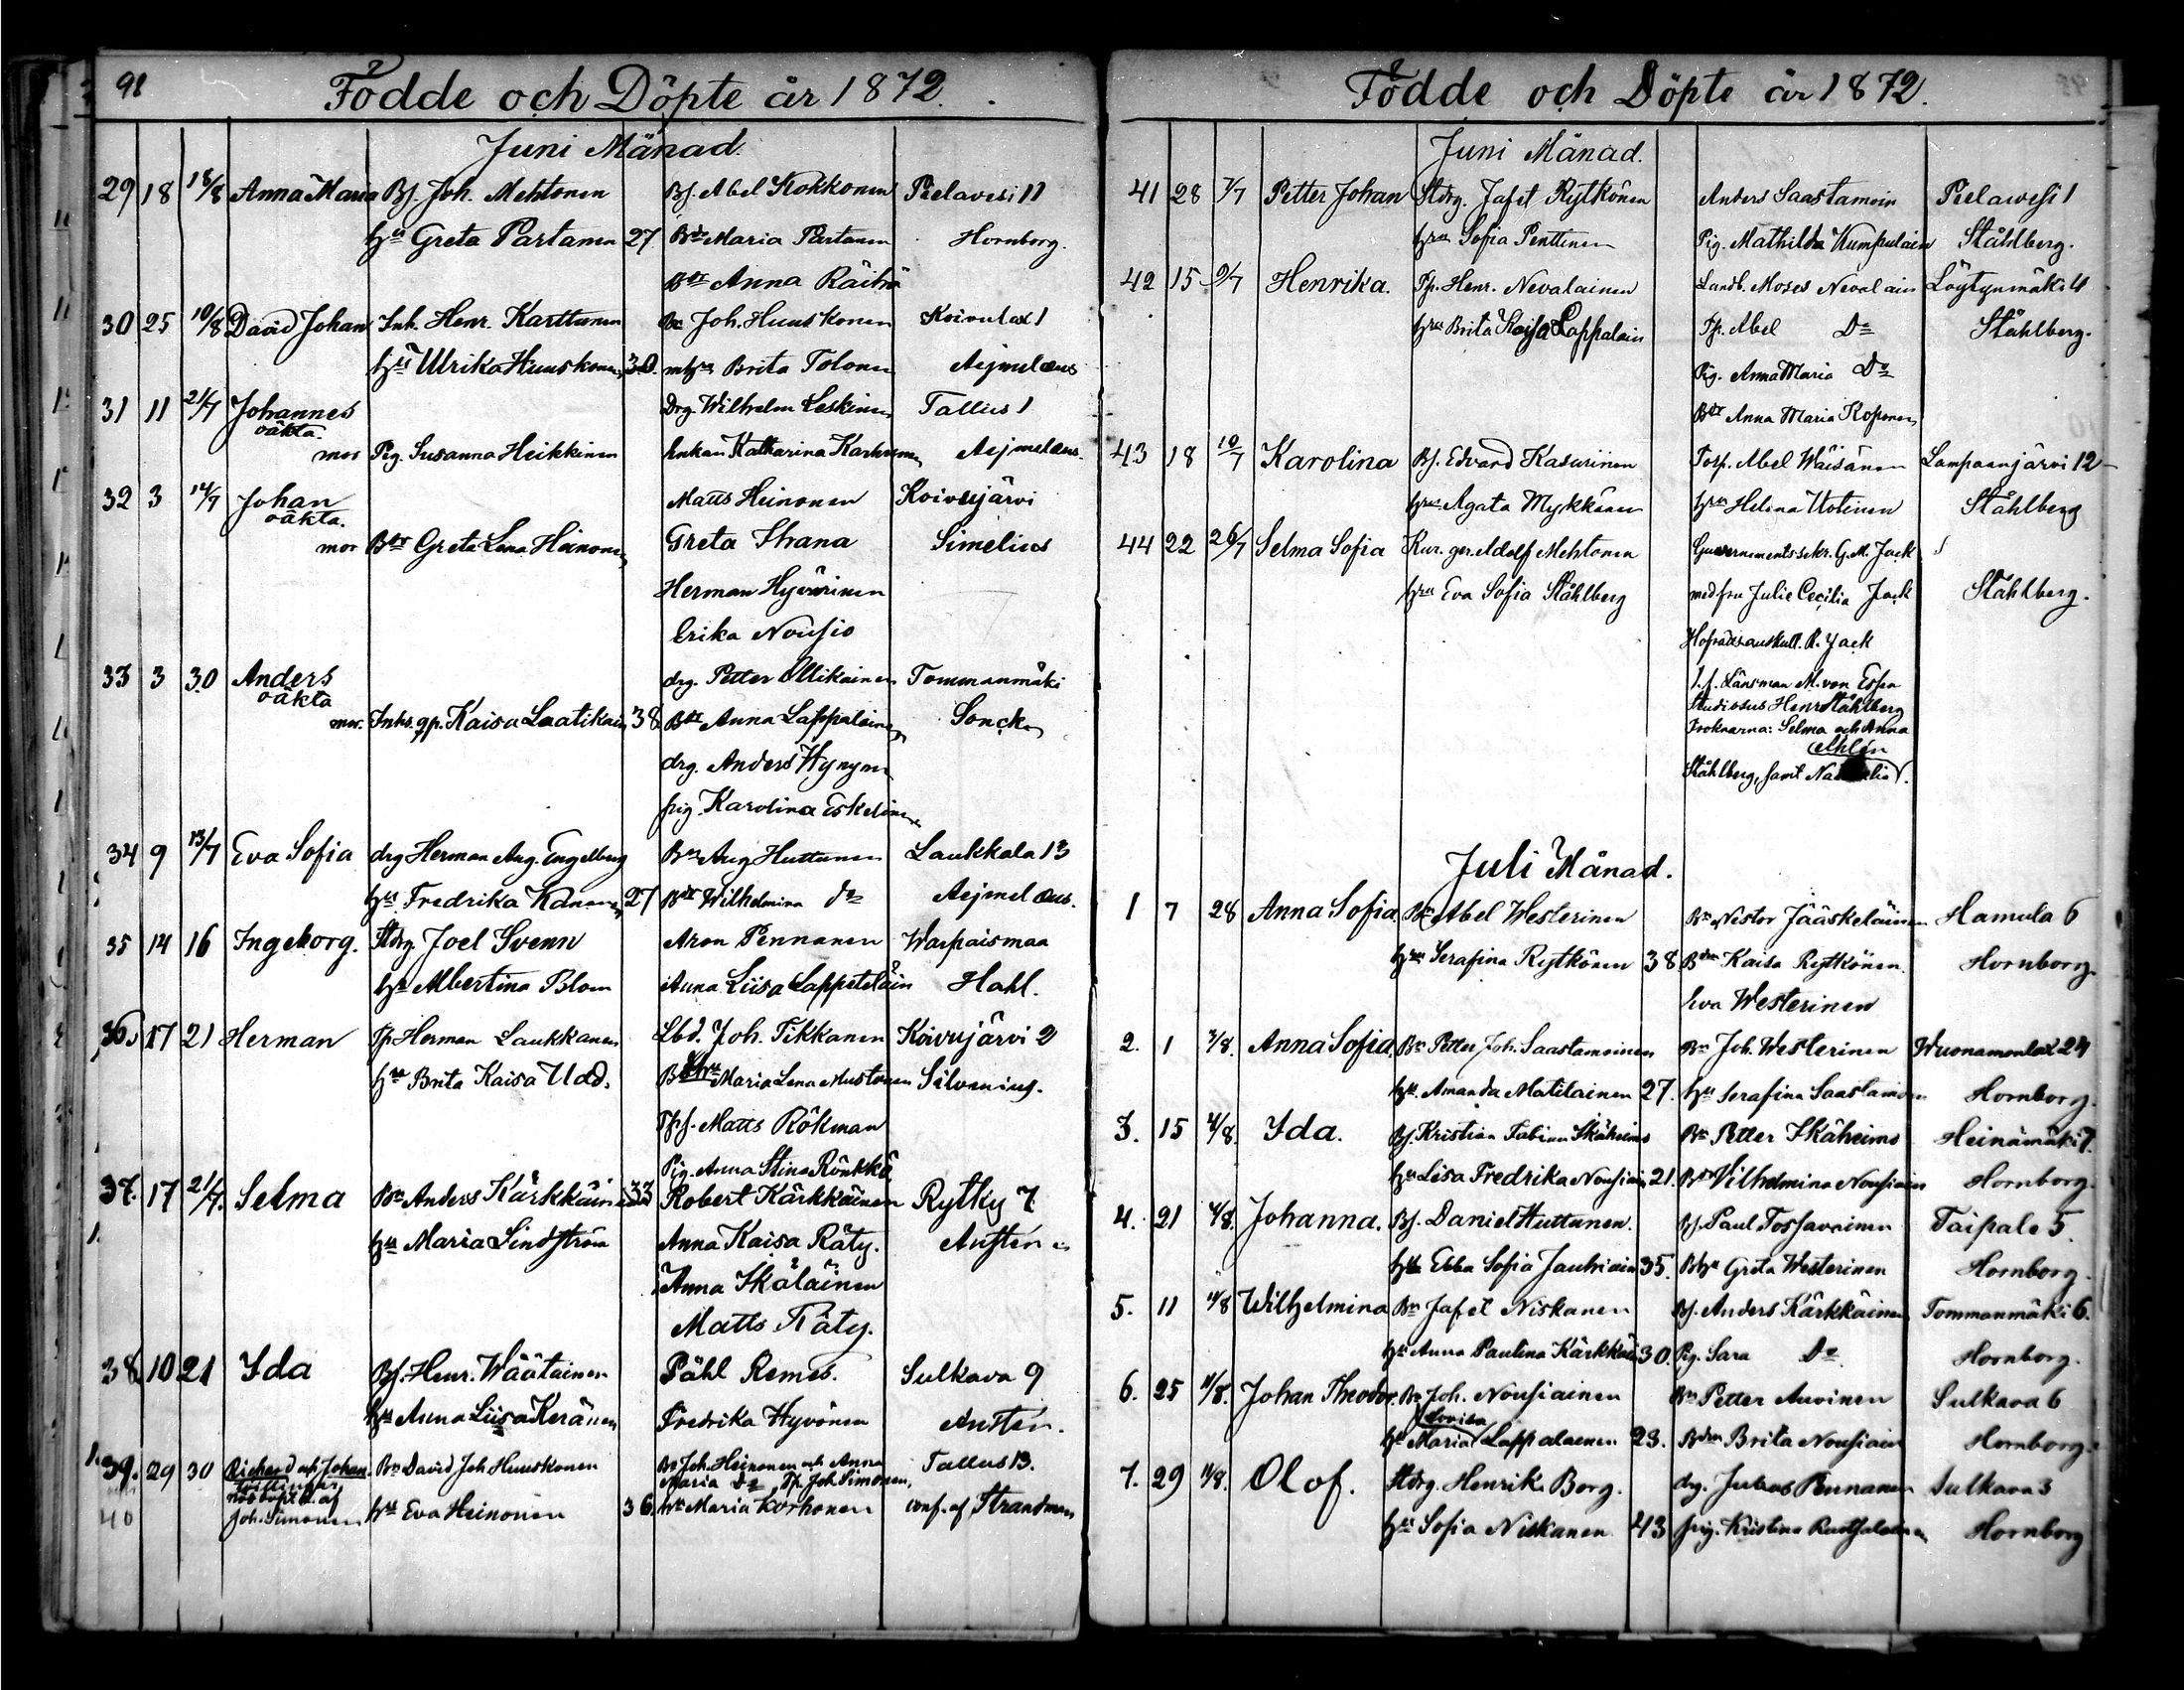 98
Födde och Döpte år 1872.
Juni Månad.
29 18 18/8 Anna Maria Bf. Joh. Mehtonen Bf. Abel Kokkonen Pielavesi 11
hu Greta Partanen 27 Bdr Maria Partanen Hornborg.
Bdr Anna Räihä
30 25 10/8 David Johan Inh. Henr. Karttunen Bn Joh. Huuskonen Koivulax 1
hu Ulrika Huuskonen 30. m hu Brita Tolonen Aejmelæus
31 11 21/7 Johannes Drg. Wilhelm Leskinen Tallus 1
oäkta.
mor Pig. Susanna Heikkinen Enkan Katharina Karhunen Aejmelæus.
32 3 14/7 Johan Matts Heinonen Koivujärvi
oäkta.
mor Bdr Greta Lena Heinonen Greta Ihana Simelius
Herman Hyvärinen
Erika Nousio
33 3 30 Anders drg. Petter Ollikainen Tommanmäki
oäkta
mor. Inhs. gp. Kaisa Laatikain 38 Bdr Anna Lappalainen Sonck
drg. Anders Hynynen
pig. Karolina Eskelinen
34 9 13/7 Eva Sofia drg Herman Aug. Engelberg Bn Aug Huttunen Laukkala 13
hu Fredrika Kananen 27 Bdr Wilhelmina Do Aejmelæus.
35 14 16 Ingeborg. Stdrg Joel Svenn Aron Pennanen Warpaismaa
hu Albertina Blom Anna Liisa Lappeteläin Hahl.
36 17 21 Herman Tp Herman Laukkanen Lbd. Joh. Tikkanen Koivujärvi 2
hu Brita Kaisa Udd. Maria Lena Mustonen Silvenius.
Tpf. Matts Rökman
Pig. Anna Stina Rönkkö
37. 17 21/7. Selma Bn Anders Kärkkäinen 33 Robert Kärkkäinen Rytky 7
hu Maria Lindström Anna Kaisa Räty. Austen
Anna Ikäläinen
Matts Räty.
38 10 21 Ida Bf. Henr. Wäätäinen Påhl Remes. Sulkava 9
hu Anna Liisa Keränen Fredrika Hyvönen Austen.
39. 29 30 Richard och Johan Bn David Joh Huuskonen Bn Joh. Heinonen och Anna Tallus 13.
tvillingar Maria Do Tp. Joh Simonen,
nöddöpt. af
40 Joh. Simonen hu Eva Heinonen 36. hu Maria Korhonen conf. af Strandman
Födde och Döpte år 1872.
Juni Månad.
41 28 7/7 Petter Johan Stdrg. Jafet Rytkönen Anders Saastamoin Pielawesi 1
hru Sofia Penttinen Pig. Mathilda Kumpulain Ståhlberg.
42 15 9/7 Henrika. Tp. Henr. Nevalainen Landb. Moses Nevalain Löytynmäki 4
hru Brita Kaisa Lappalain Tp. Abel Do Ståhlberg.
Pig. Anna Maria Do
Bdr Anna Maria Koponen
43 18 10/7 Karolina Bf. Edvard Kasurinen Torp. Abel Wäisänen Lampaanjärvi 12
hru Agata Mykkänen hru Helena Utolinen Ståhlberg
44 22 26/7 Selma Sofia Kur. ger. Adolf Mehtonen Guvernementssekr. G. M. Jack
hru Eva Sofia Ståhlberg med fru Julie Cecilia Jack Ståhlberg.
Hofrådsauskult. R. Jack
t. f. Länsman M. von Essen
Studiosus Henr Ståhlberg
Froknarna: Selma och Anna
Ståhlberg, samt
Juli Månad.
1 7 28 Anna Sofia Bn Abel Westerinen Bn Nestor Jääskeläinen Hamula 6
hru Serafina Rytkönen 38 Bdr Kaisa Rytkönen. Hornborg.
Eva Westerinen
2. 1 3/8. Anna Sofia Bn Petter Joh. Saastamoinen Bn Joh. Westerinen Wuonamonlax 24
hu. Amanda Matilainen 27. hu Serafina Saastamoin Hornborg.
3. 15 4/8. Ida. Bf. Kristian Fabian Ikäheimo Bn Petter Ikäheimo Heinämäki 7.
hu Lisa Fredrika Nousiain 21. Bdr Vilhelmina Nousiain Hornborg.
4. 21 4/8. Johanna. Bf. Daniel Huttunen. Bf. Paul Tossavainen Taipale 5.
hu Ebba Sofia Jauhiain 35. Bhu Greta Westerinen Hornborg.
5. 11 11/8 Wilhelmina Bn Jafet Niskanen Bf. Anders Kärkkäinen Tommanmäki 6.
hu Anna Paulina Kärkkäi 30. Pig. Sara Do Hornborg.
6. 25 11/8. Johan Theodor. Bn Joh. Nousiainen Bn Petter Auvinen Sulkava 6
Lovisa
hu Maria Lappalaenen 23. Bdr Brita Nousiain Hornborg.
7. 29 11/8. Olof. Stdrg. Henrik Borg. drg. Julius Pennanen Sulkava 3
hu Sofia Niskanen 43 pig. Kristina Ruotsalainen Hornborg